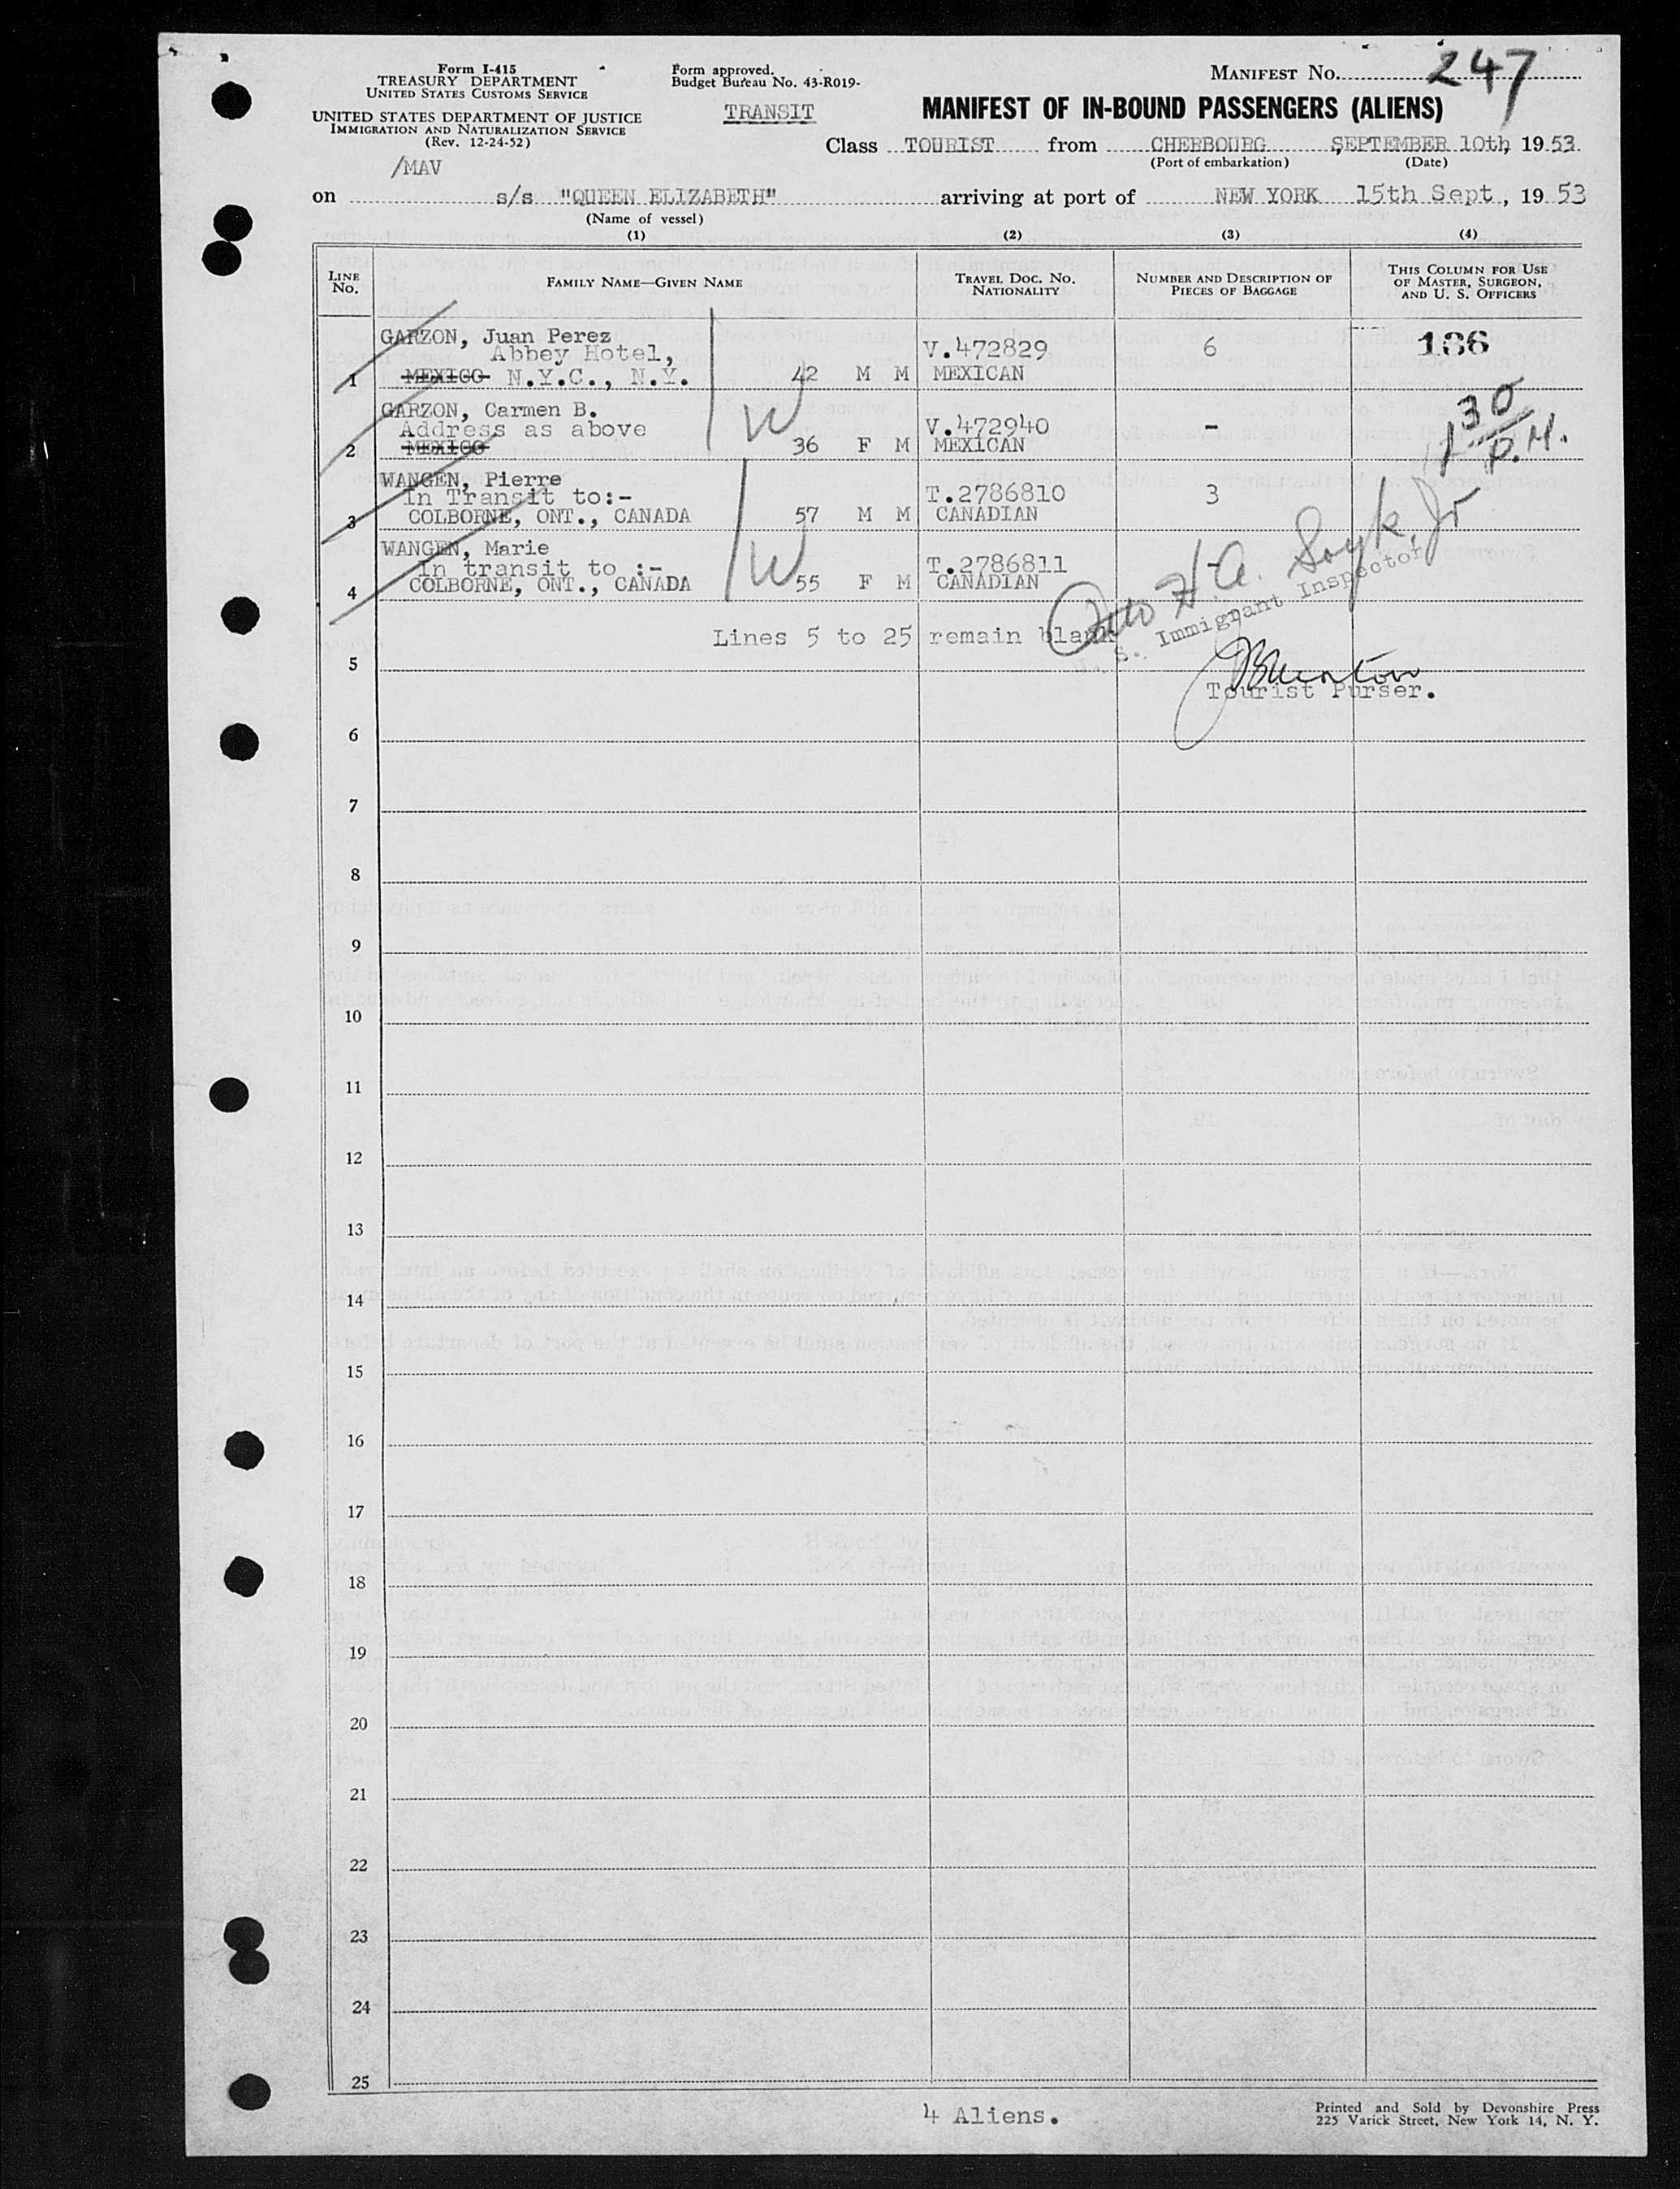 Form I-415
TREASURY DEPARTMENT
UNITED STATES CUSTOMS SERVICE
UNITED STATES DEPARTMENT OF JUSTICE
IMMIGRATION AND NATURALIZATION SERVICE
(Rev. 12-24-52)
/MAV
Form approved.
Budget Bureau No. 43-R019-
TRANSIT
MANIFEST NO. 247
MANIFEST OF IN-BOUND PASSENGERS (ALIENS)
Class TOURIST from CHERBOURG SEPTEMBER 10th, 19 53
(Port of embarkation) (Date)
on s/s "QUEEN ELIZABETH" arriving at port of NEW YORK 15th Sept, 19 53
(Name of vessel)
(1) (2) (3) (4)
LINE NO. FAMILY NAME—GIVEN NAME TRAVEL DOC. NO. NATIONALITY NUMBER AND DESCRIPTION OF PIECES OF BAGGAGE THIS COLUMN FOR USE OF MASTER, SURGEON, AND U. S. OFFICERS
GARZON, Juan Perez
Abbey Hotel, V.472829 6 186
1 MEXICO N.Y.C., N.Y. 42 M M MEXICAN
GARZON, Carmen B.
Address as above V.472940 - 1 30 P.M.
2 MEXICO 36 F M MEXICAN
W
WANGEN, Pierre
In Transit to:- T.2786810 3
3 COLBORNE, ONT., CANADA 57 M M CANADIAN
WANGEN, Marie
In transit to :- T.2786811 -
4 COLBORNE, ONT., CANADA 55 F M CANADIAN
W
Otto H.A. Jr
U. S. Immigrant Inspector
Lines 5 to 25 remain blank
5
Tourist Purser.
6
7
8
9
10
11
12
13
14
15
16
17
18
19
20
21
22
23
24
25
4 Aliens.
Printed and Sold by Devonshire Press
225 Varick Street, New York 14, N. Y.